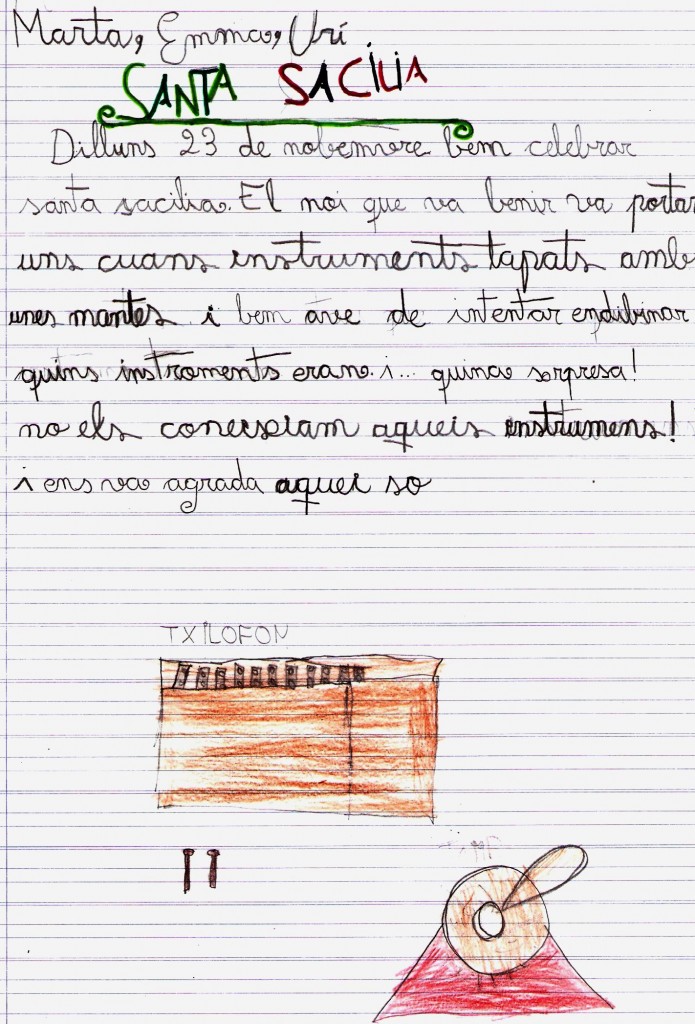 Marta, Emma, Urí
SANTA SACÍLIA
Dilluns 23 de nobemvre bem celebrar
santa sacilia. El noi que va benir va portar
uns cuans instruments tapats amb
unes mantes i bem ave de intentar endibinar
quins instroments eran. i... quina sorpresa!
no els coneixiam aqueis instrumens!
i ens va agrada aquei so
TXILOFON